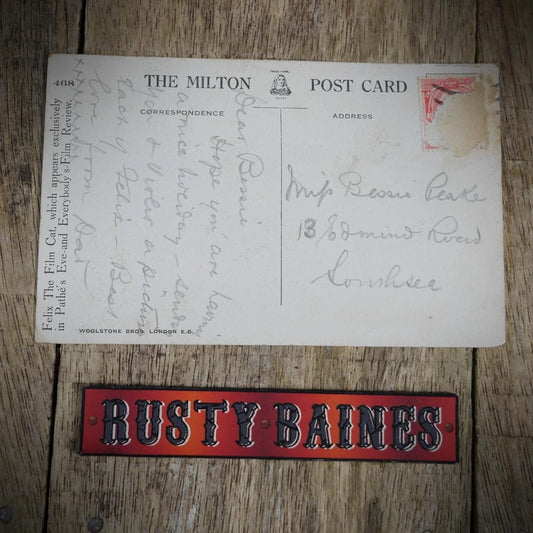 468
THE MILTON POST CARD
CORRESPONDENCE
ADDRESS
Felix The Film Cat, which appears exclusively
in Pathé's Eve-and Everybody's-Film Review.
Dear Bessie
Hope you are having
a nice holiday – sending
you & Violet a picture
each of Felix – Best
love from Dad
xxxxxxxx
Miss Bessie Peake
13 Edmund Road
Southsea
WOOLSTONE BROS LONDON E.C.
RUSTY BAINES